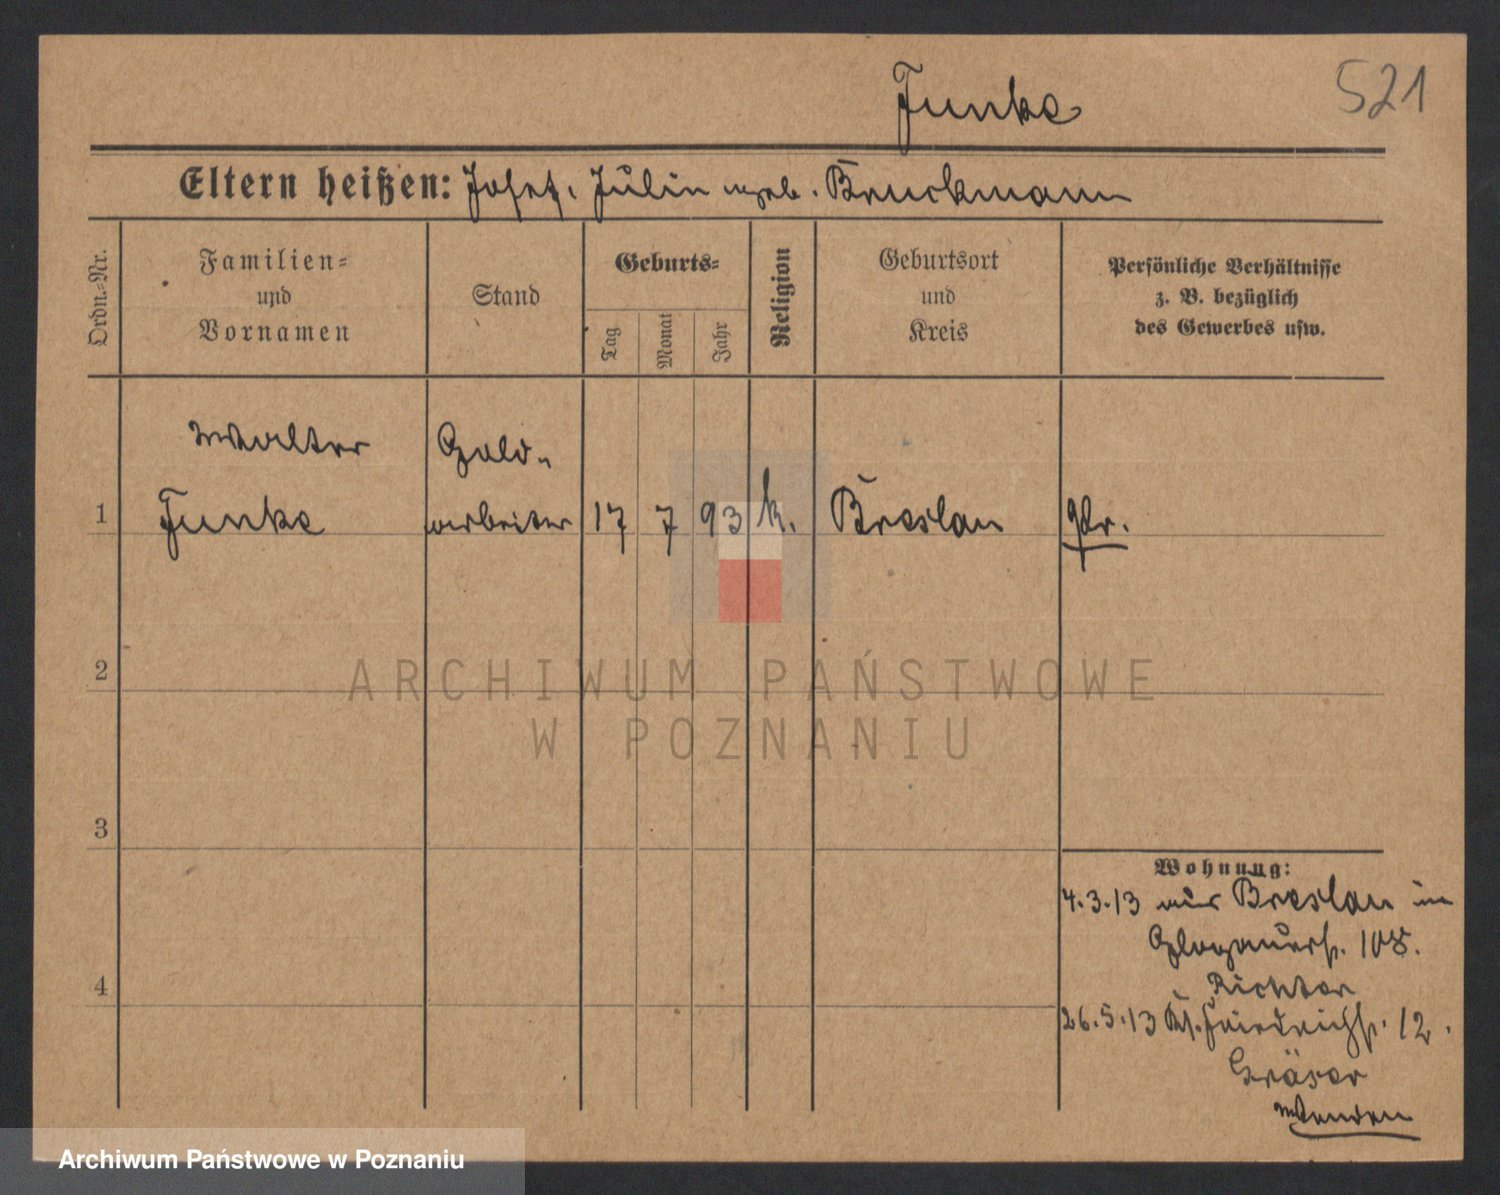 Funke
521
Eltern heißen: Josef, Julia geb. Bruckmann
Ordn.-Nr.
Familien-
und
Vornamen
Stand
Geburts-
Tag
Monat
Jahr
Religion
Geburtsort
und
Kreis
Persönliche Verhältnisse
z. B. bezüglich
des Gewerbes usw.
Walter Gold-
1 Funke arbeiter 17 7 93 k. Breslau Pr.
2
3
4
Wohnung:
4.3.13 aus Breslau in
Glogauerstr. 108.
Richter
26.5.13 Friedrichstr. 12.
Gräser
wenden
ARCHIWUM PAŃSTWOWE
W POZNANIU
Archiwum Państwowe w Poznaniu